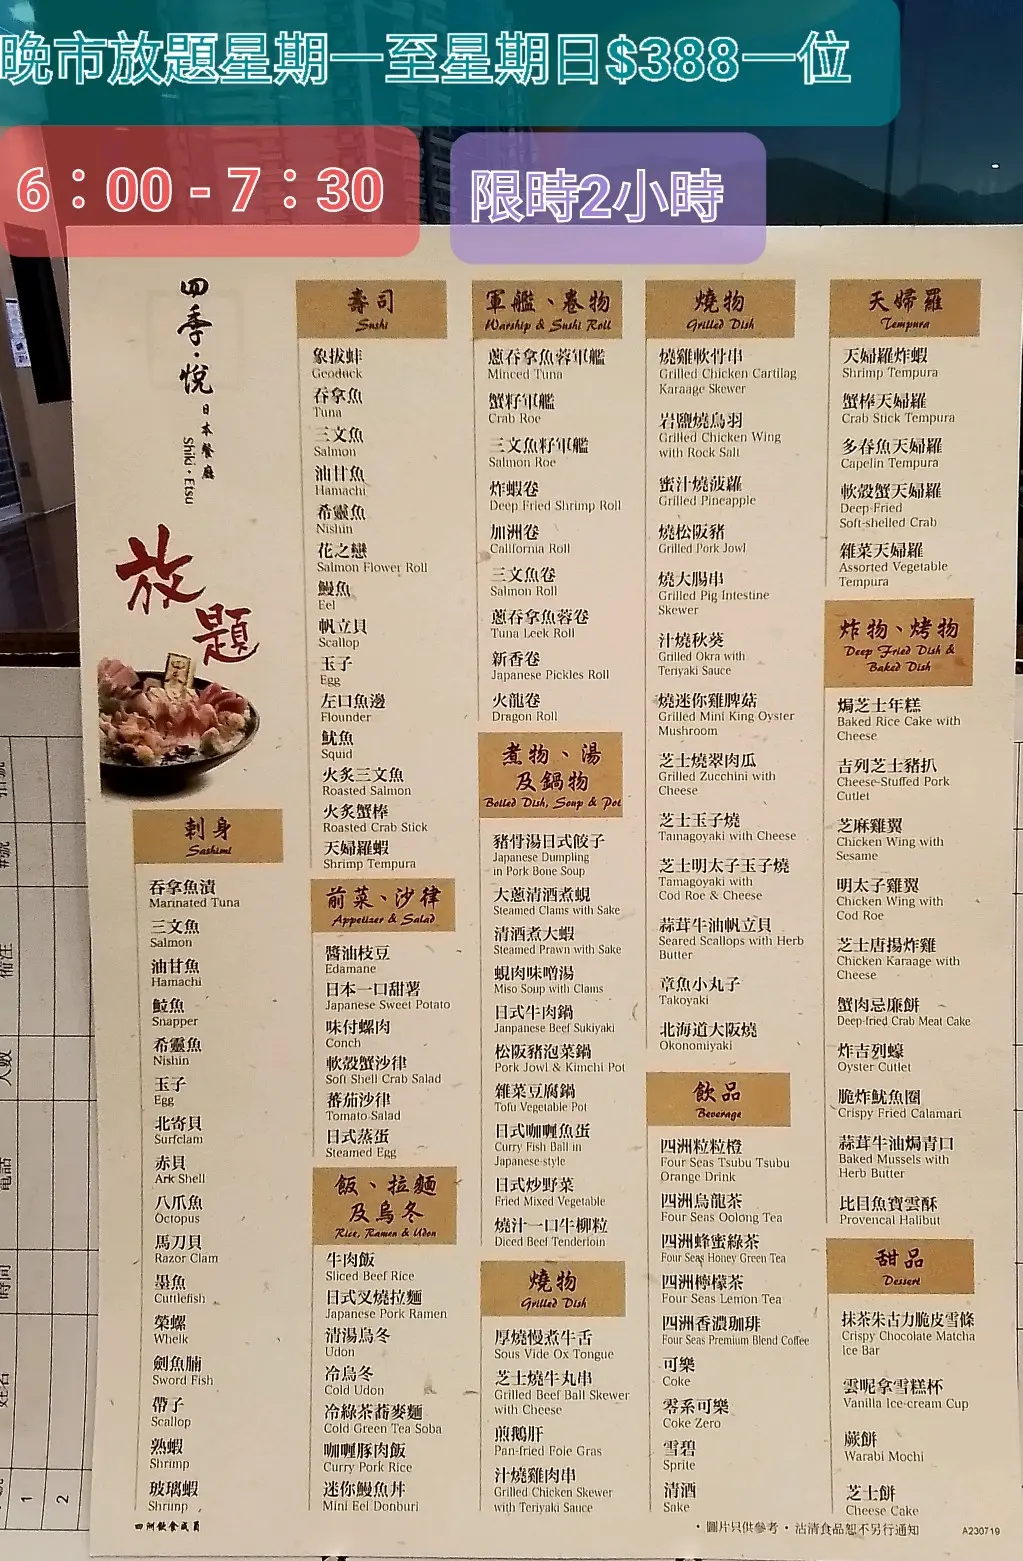 晚市放題星期一至星期日$388一位
6：00 - 7：30
限時2小時
四季·悅
日本餐廳
Shiki·Etsu
放題
刺身
Sashimi
吞拿魚漬
Marinated Tuna
三文魚
Salmon
油甘魚
Hamachi
鯐魚
Snapper
希靈魚
Nishin
玉子
Egg
北寄貝
Surfclam
赤貝
Ark Shell
八爪魚
Octopus
馬刀貝
Razor Clam
墨魚
Cuttlefish
榮螺
Whelk
劍魚腩
Sword Fish
帶子
Scallop
熟蝦
Shrimp
玻璃蝦
Shrimp
四洲飲食成員
壽司
Sushi
象拔蚌
Geoduck
吞拿魚
Tuna
三文魚
Salmon
油甘魚
Hamachi
希靈魚
Nishin
花之戀
Salmon Flower Roll
鰻魚
Eel
帆立貝
Scallop
玉子
Egg
左口魚邊
Flounder
魷魚
Squid
火炙三文魚
Roasted Salmon
火炙蟹棒
Roasted Crab Stick
天婦羅蝦
Shrimp Tempura
前菜、沙律
Appetizer & Salad
醬油枝豆
Edamane
日本一口甜薯
Japanese Sweet Potato
味付螺肉
Conch
軟殼蟹沙律
Soft Shell Crab Salad
蕃茄沙律
Tomato Salad
日式蒸蛋
Steamed Egg
飯、拉麵
及烏冬
Rice, Ramen & Udon
牛肉飯
Sliced Beef Rice
日式叉燒拉麵
Japanese Pork Ramen
清湯烏冬
Udon
冷烏冬
Cold Udon
冷綠茶蕎麥麵
Cold Green Tea Soba
咖喱豚肉飯
Curry Pork Rice
迷你鰻魚丼
Mini Eel Donburi
軍艦、卷物
Warship & Sushi Roll
蔥吞拿魚蓉軍艦
Minced Tuna
蟹籽軍艦
Crab Roe
三文魚籽軍艦
Salmon Roe
炸蝦卷
Deep Fried Shrimp Roll
加洲卷
California Roll
三文魚卷
Salmon Roll
蔥吞拿魚蓉卷
Tuna Leek Roll
新香卷
Japanese Pickles Roll
火龍卷
Dragon Roll
煮物、湯
及鍋物
Boiled Dish, Soup & Pot
豬骨湯日式餃子
Japanese Dumpling
in Pork Bone Soup
大蔥清酒煮蜆
Steamed Clams with Sake
清酒煮大蝦
Steamed Prawn with Sake
蜆肉味噌湯
Miso Soup with Clams
日式牛肉鍋
Janpanese Beef Sukiyaki
松阪豬泡菜鍋
Pork Jowl & Kimchi Pot
雜菜豆腐鍋
Tofu Vegetable Pot
日式咖喱魚蛋
Curry Fish Ball in
Japanese-style
日式炒野菜
Fried Mixed Vegetable
燒汁一口牛柳粒
Diced Beef Tenderloin
燒物
Grilled Dish
厚燒慢煮牛舌
Sous Vide Ox Tongue
芝士燒牛丸串
Grilled Beef Ball Skewer
with Cheese
煎鵝肝
Pan-fried Foie Gras
汁燒雞肉串
Grilled Chicken Skewer
with Teriyaki Sauce
燒物
Grilled Dish
燒雞軟骨串
Grilled Chicken Cartilag
Karaage Skewer
岩鹽燒鳥羽
Grilled Chicken Wing
with Rock Salt
蜜汁燒菠蘿
Grilled Pineapple
燒松阪豬
Grilled Pork Jowl
燒大腸串
Grilled Pig Intestine
Skewer
汁燒秋葵
Grilled Okra with
Teriyaki Sauce
燒迷你雞脾菇
Grilled Mini King Oyster
Mushroom
芝士燒翠肉瓜
Grilled Zucchini with
Cheese
芝士玉子燒
Tamagoyaki with Cheese
芝士明太子玉子燒
Tamagoyaki with
Cod Roe & Cheese
蒜茸牛油帆立貝
Seared Scallops with Herb
Butter
章魚小丸子
Takoyaki
北海道大阪燒
Okonomiyaki
飲品
Beverage
四洲粒粒橙
Four Seas Tsubu Tsubu
Orange Drink
四洲烏龍茶
Four Seas Oolong Tea
四洲蜂蜜綠茶
Four Seas Honey Green Tea
四洲檸檬茶
Four Seas Lemon Tea
四洲香濃珈琲
Four Seas Premium Blend Coffee
可樂
Coke
零系可樂
Coke Zero
雪碧
Sprite
清酒
Sake
天婦羅
Tempura
天婦羅炸蝦
Shrimp Tempura
蟹棒天婦羅
Crab Stick Tempura
多春魚天婦羅
Capelin Tempura
軟殼蟹天婦羅
Deep-Fried
Soft-shelled Crab
雜菜天婦羅
Assorted Vegetable
Tempura
炸物、烤物
Deep Fried Dish &
Baked Dish
焗芝士年糕
Baked Rice Cake with
Cheese
吉列芝士豬扒
Cheese-Stuffed Pork
Cutlet
芝麻雞翼
Chicken Wing with
Sesame
明太子雞翼
Chicken Wing with
Cod Roe
芝士唐揚炸雞
Chicken Karaage with
Cheese
蟹肉忌廉餅
Deep-fried Crab Meat Cake
炸吉列蠔
Oyster Cutlet
脆炸魷魚圈
Crispy Fried Calamari
蒜茸牛油焗青口
Baked Mussels with
Herb Butter
比目魚寶雲酥
Provencal Halibut
甜品
Dessert
抹茶朱古力脆皮雪條
Crispy Chocolate Matcha
Ice Bar
雲呢拿雪糕杯
Vanilla Ice-cream Cup
蕨餅
Warabi Mochi
芝士餅
Cheese Cake
·圖片只供參考·沽清食品恕不另行通知
A230719
備注
人數
電話
時間
姓名
1
2